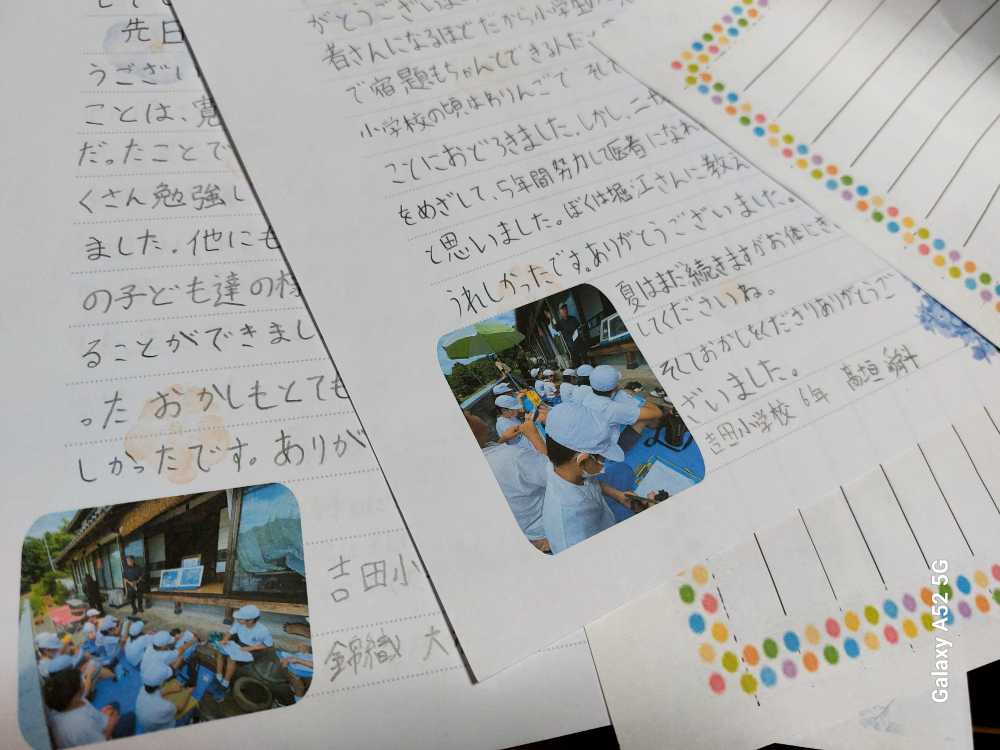 先日
うござい
ことは、
だったことで
くさん勉強し
ました。他にも
の子ども達の様
ることができまし
った おかしもとても
しかったです。ありが
吉田小
錦織 大
がとうございま
者さんになるほどだから小学生
で宿題もちゃんとできる人だ
小学校の頃はわりんごで そして
ことにおどろきました。しかし、二
をめざして、5年間努力して医者になれ
と思いました。ぼくは堀江さんに教え
うれしかったです。ありがとうございました。
夏はまだ続きますがお体にき
してくださいね。
そしておかしをくださりありがとうご
ざいました。
吉田小学校 6年 高垣
Galaxy A52 5G